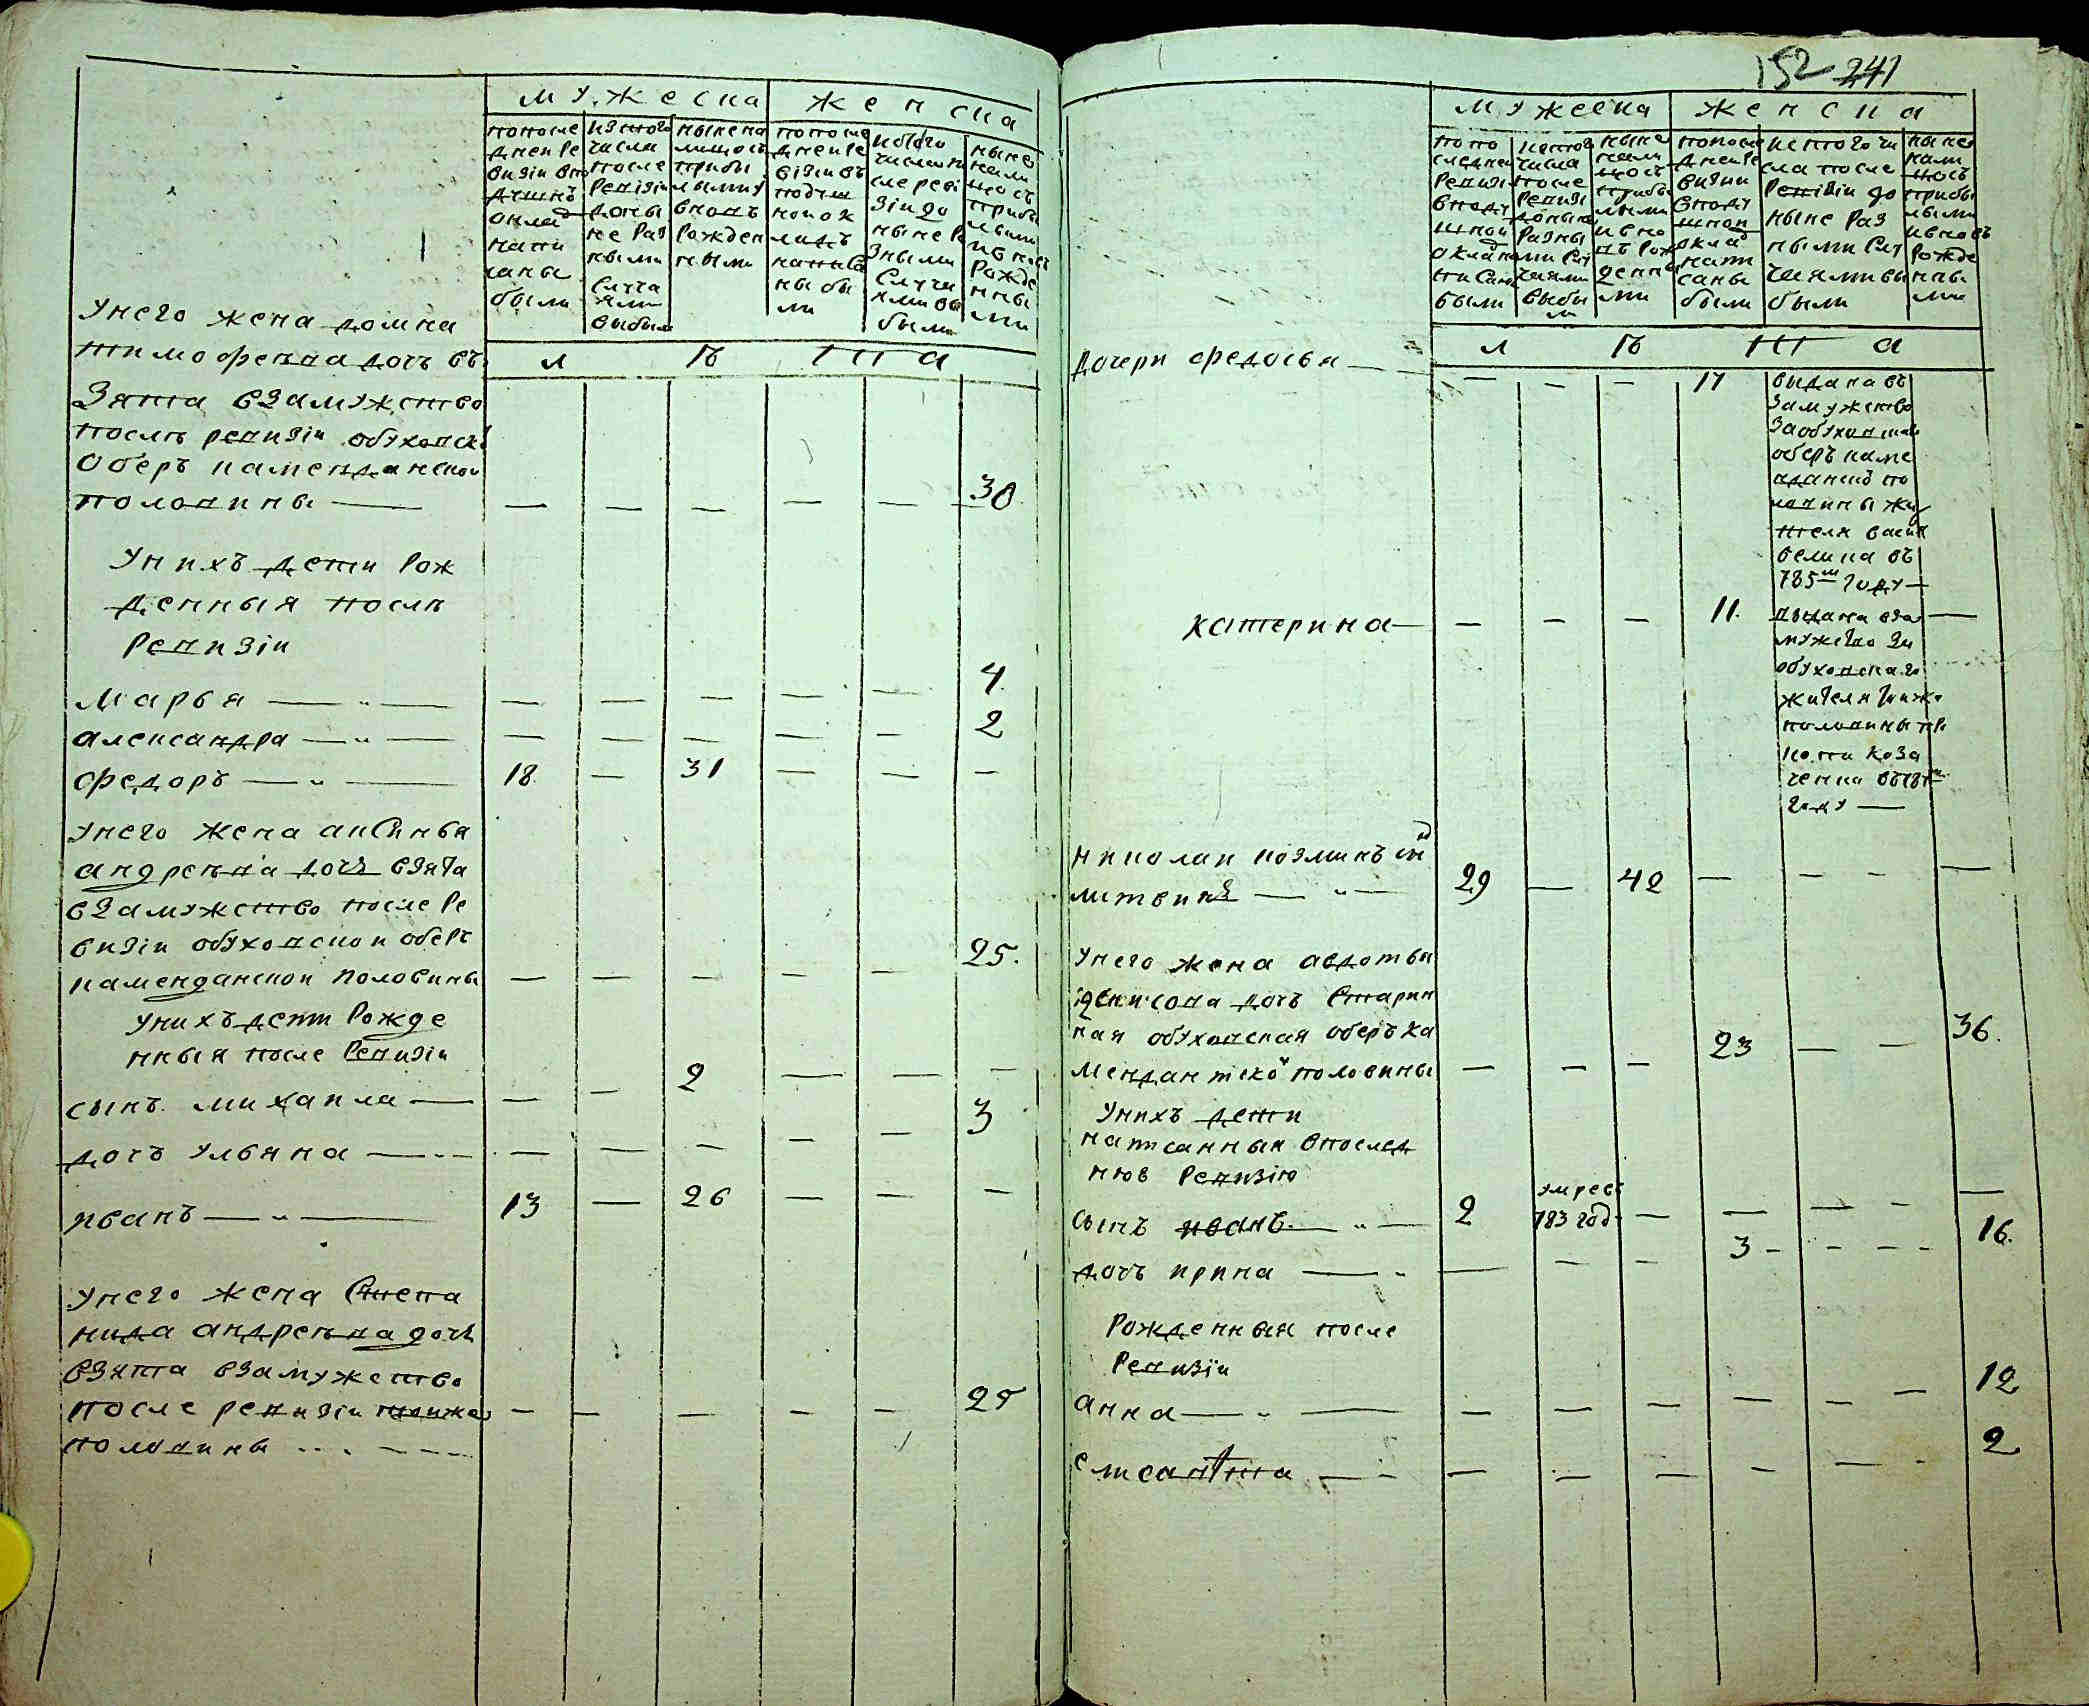 мужеска женска
попосле
дней ре
визiи впо
душнъ
оклад
напи
саны
были
изтого
числа
после
ревизiи
доны
не раз
ными
случа
ями
выбыли
ныне на
лицосъ
прибы
лыми у
вновь
рожден
ными
попосле
дней ре
визiи въ
подуш
ной ок
ладъ
написа
ны бы
ли
истого
числа по
сле реви
зiи до
ныне ра
зными
случа
ями вы
были
ныне
нали
цосъ
прибы
лыми
ивновъ
рожде
нны
ми
Унего жена домна
тимофеева дочъ въ
зята взамужство
послѣ ревизiи обуховск
оберъ камендансной
половины — — — — — — 30
Унихъ дети рож
денныя послѣ
ревизiи
лѣта
Марья — — — — — — 4
александра — — — — — — 2
федоръ — 18 — 31 — — —
унего жена аксинья
андреева дочь взята
взамужство после ре
визiи обуховской оберъ
каменданской половины — — — — — 25.
унихъ дети рожде
нныя после ревизiи
сынъ михаила — — — 2 — — —
дочь ульяна — — — — — — 3
иванъ — 13 — 26 — — —
Унего жена степа
нида андреева дочь
взята взамужство
после ревизiи
половины — — — — — 25
152 241
мужеска женска
попо
следней
ревизи
вподу
шной
окладъ
были
истого
числа
после
ревизи
доныне
разны
ми слу
чаями
выбы
ли
ныне
нали
цосъ
прибы
лыми
ивно
въ рож
денны
ми
попосле
дней ре
визии
вподу
шной
оклад
напи
саны
были
истого чи
сла после
ревизiи до
ныне раз
ными слу
чаями вы
были
ныне
нали
цосъ
прибы
лыми
ивновъ
рожде
нны
ми
лѣта
Дочери федосья — — — — 17
выдана въ
замужство
заобуховска
оберъ каме
нданской по
ловины жи
теля васил
велика въ
785м году —
катерина — — — — 11. выдана вза —
мужство за
обуховскаго
жителя
половины
коза
ченка
году —
николай козминъ сн
литвинъ — 29 — 42 — — — —
Унего жена авдотья
денисова дочь старин
ная обуховская оберъ ка
менданской половины — — — 23 — — 36.
Унихъ дети
написанныя впослед
нюю ревизiю
сынъ иванъ — 2 умре въ
783 год — — — — —
дочь ирина — — — — 3 — — — 16.
Рожденныя после
ревизiи
анна — — — — — — — 12
— — — — — — 2